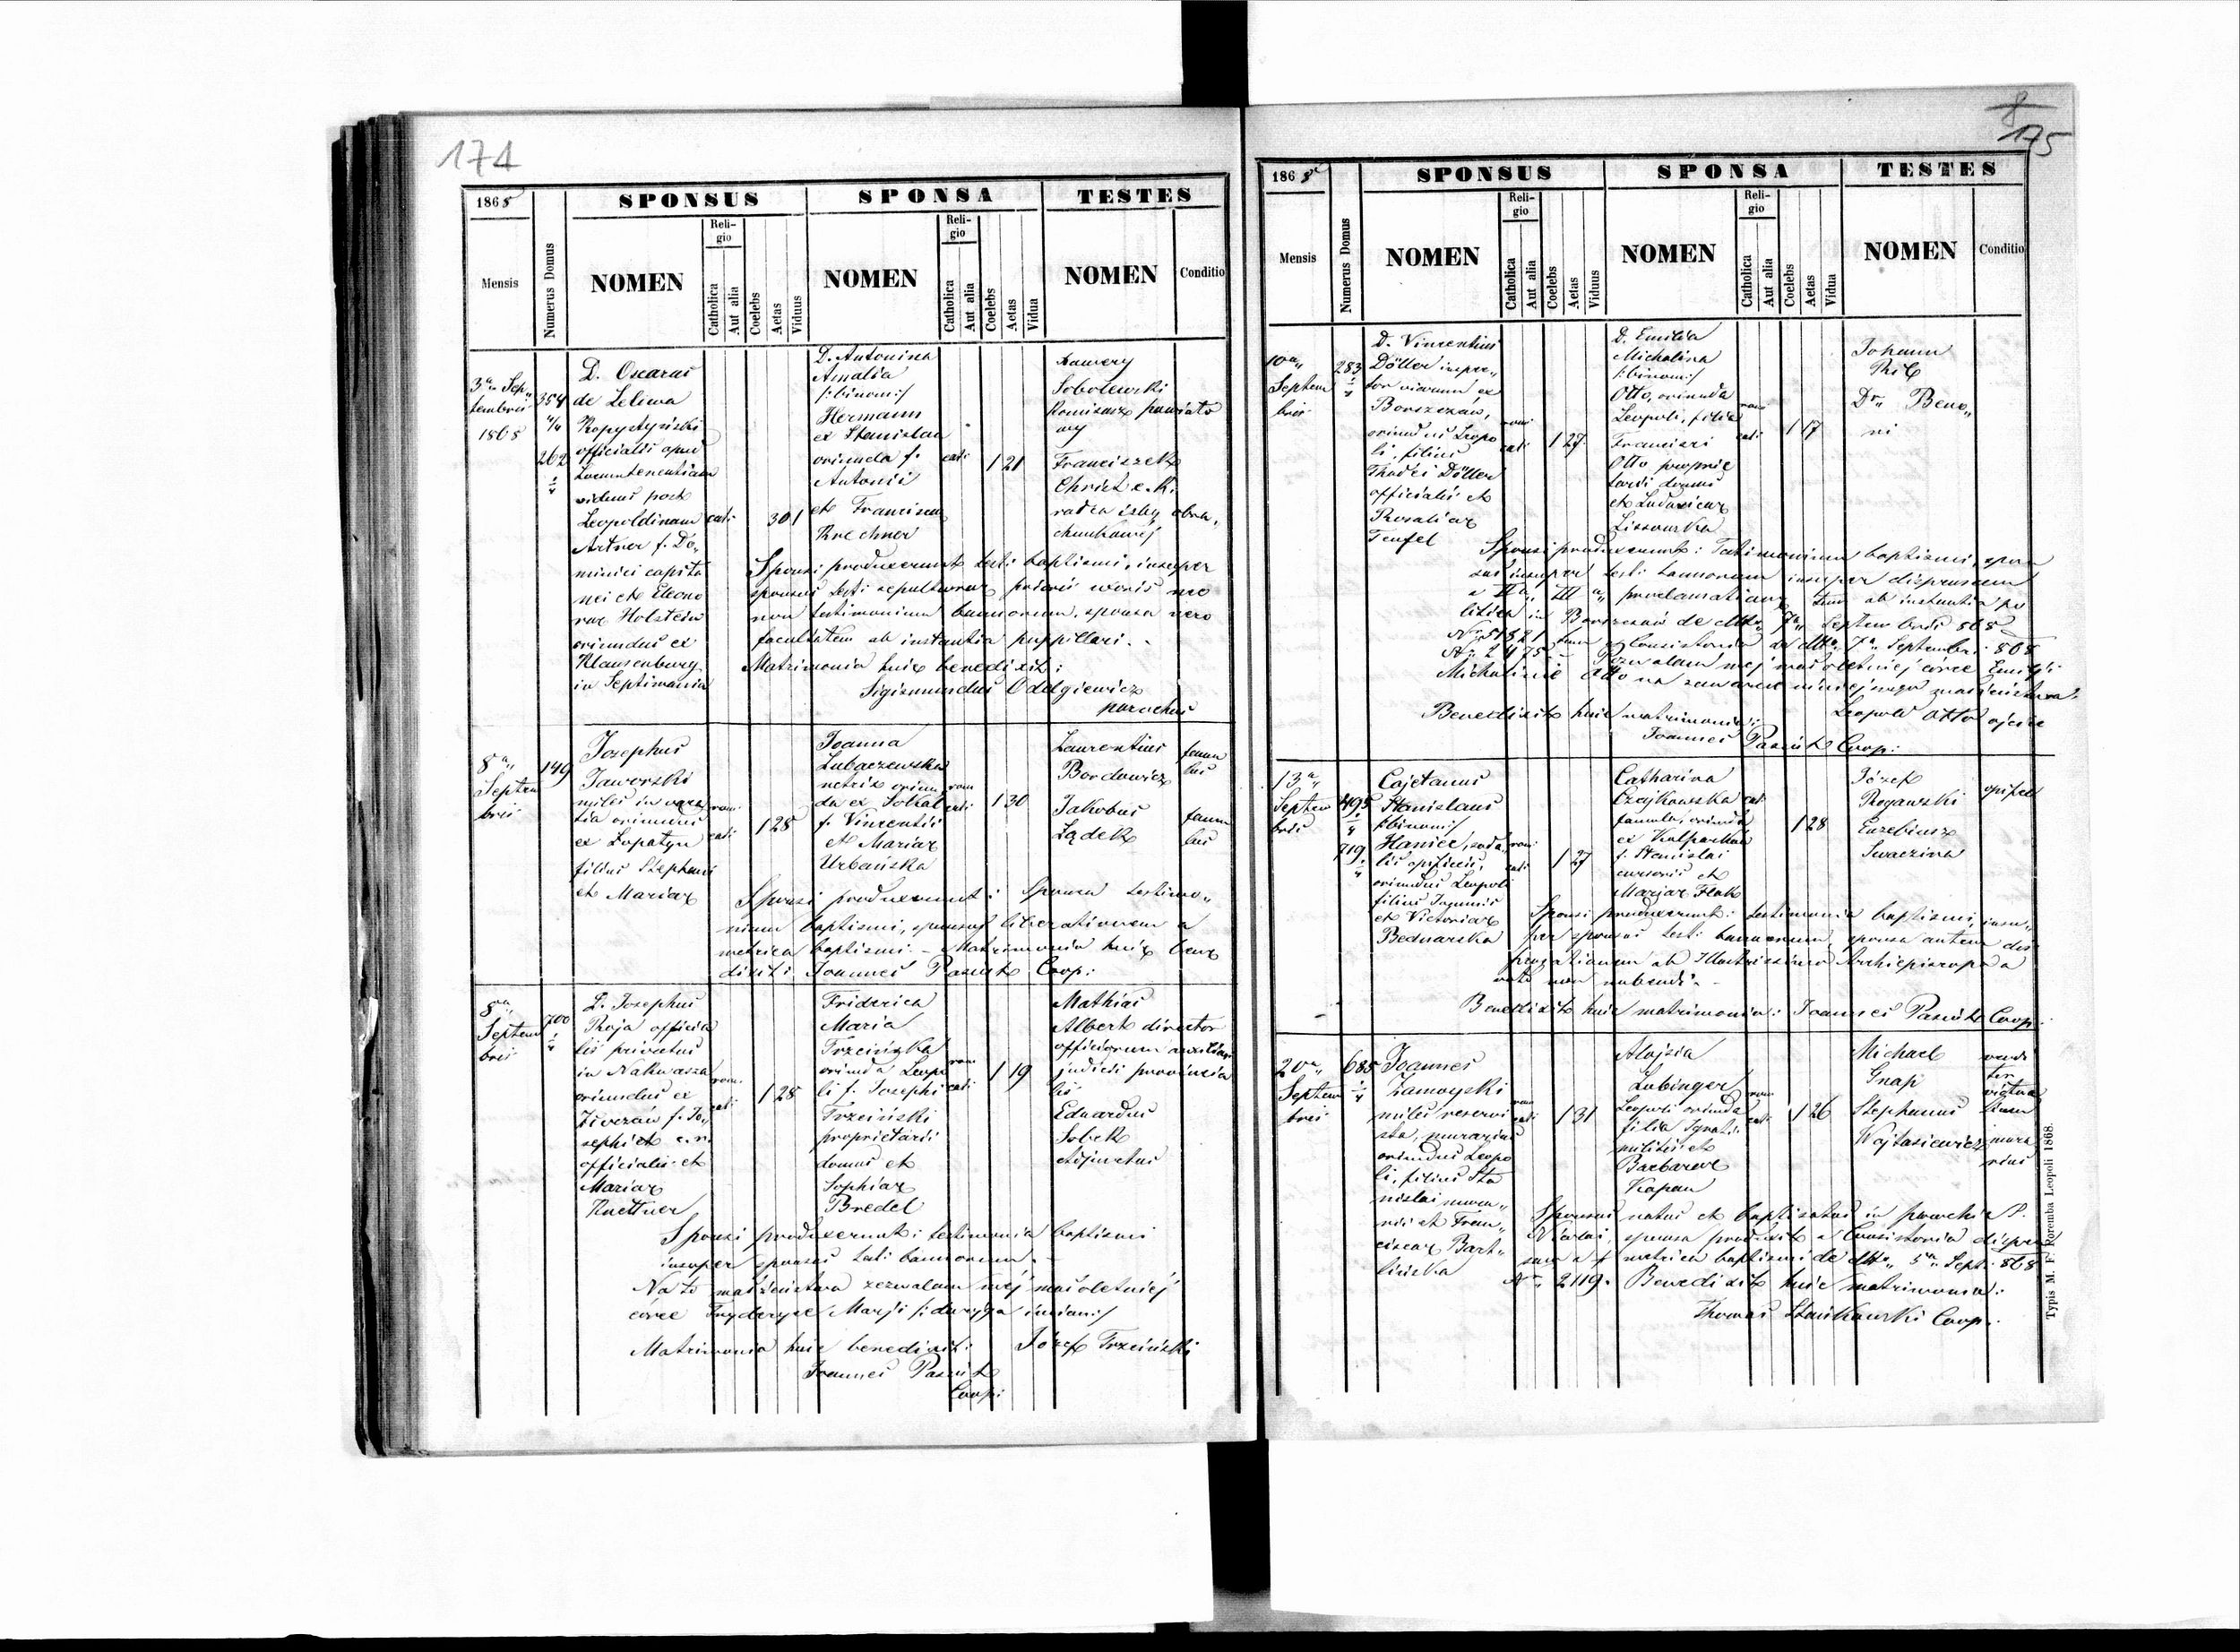 174
1868
SPONSUS
SPONSA
TESTES
Mensis
Numerus Domus
NOMEN
Religio
Catholica
Aut alia
Coelebs
Aetas
Viduus
NOMEN
Religio
Catholica
Aut alia
Coelebs
Aetas
Vidua
NOMEN
Conditio
3a Sep„
tembris
1868
354
4/4
262
D. Oscarus
de Leliwa
Kopystyński
officialis apud
Locumtenentiam
viduus post
Leopoldinam
Artner f. Do„
minici capita
nei et Eleono
rae Holstein
oriundus ex
Klausenburg
in Septimania
cath:
30 1
D. Antonina
Amalia
/:binom:/
Hermann
ex Stanislau
oriunda f.
Antonii
et Franciscae
Krechner
cath:
1 21
Xawery
Sobolewski
Komisarz powiato
wy
Franciszek
Christ c. k.
radca izby obra„
chunkowej
Sponsi produxerunt testi: baptismi, insuper
sponsus testi sepulturae prioris uxoris nec
non testimonium bannorum, sponsa vero
facultatem ab instantia puppillari. -
Matrimonio huic benedixit:
Sigismundus Odelgiewicz
parochus
8a„
Septem
bris
149
Josephus
Jaworski
miles in vaca
tia oriundus
ex Lopatyn
filius Stephani
et Mariae
rom:
cath:
1 28
Joanna
Lubaczewska
netrix oriun„
da ex Sokal
f. Vincentii
et Mariae
Urbańska
rom
cath:
1 30
Laurentius
Bordowicz
famu
lus
Jakobus
Lądek
famu
lus
Sponsi produxerunt: Sponsa testimo„
nium baptismi, sponsus liberationem a
metrica baptismi. - Matrimonio huic bene
dixit: Joannes Pasiut Coop:
8va
Septem
bris
700
D. Josephus
Roja officia
lis privatus
in Nakwasza
oriundus ex
f. Jo„
sephi et c. r.
officialis et
Mariae
Knettner
rom:
cath:
1 28
Friderica
Maria
Trzcińska
oriunda Leopo
li f. Josephi
Trzciński
proprietarii
domus et
Sophiae
Bredel
rom
cath:
1 19
Mathias
Albert director
officiorum auxiliar
judicii provincia
lis
Eduardus
Sobek
Adjunctus
Sponsi produxerunt: testimonia baptismi
insuper sponsus testi bannorum. -
Na to małżeństwo zezwalam mej małoletniej
córce Fryderyce Marji /: dwojga imion:/
Józef Trzciński
Matrimonio huic benedixit:
Joannes Pasiut
Coop:
8
175
1868
SPONSUS
SPONSA
TESTES
Mensis
Numerus Domus
NOMEN
Religio
Catholica
Aut alia
Coelebs
Aetas
Viduus
NOMEN
Religio
Catholica
Aut alia
Coelebs
Aetas
Vidua
NOMEN
Conditio
10a„
Septem
bris
283
D. Vincentius
Döller inspec„
tor viarum ex
Borszczów,
oriundus Leopo
li, filius
Thadei Döller
officialis et
Rosaliae
Teufel
rom:
cath:
1 27
D. Emilia
Michalina
/:binom:/
Otto, oriunda
Leopoli, filia
Francisci
Otto proprie
tarii domus
et Ludovicae
Lissowska
rom
cath:
1 17
Johann
Dr„ Beno„
ni
Sponsi produxerunt: Testimonium baptismi, spon
sus insuper testi bannorum insuper dispensam
a IIa„ IIIa„ proclamatione tum ab instantia po
litica in Borszczów de dtto„ 7a„ Septembris 868
Nr 51821 tum Consistorio de dtto„ 7a„ Septembris 868
Nr 2475 - Pozwalam mej małoletniej córce Emilji
Michalinie Otto na zawarcie niniejszego małżeństwa.
Leopold Otto ojciec
Benedixit huic matrimonio:
Joannes Pasiut Coop:
13a„
Septem
bris
495
719
Cajetanus
Stanislaus
/:binom:/
Haniec, soda„
lis opificii,
oriundus Leopoli
filius Joannis
et Victoriae
Bednarska
rom:
cath:
1 27
Catharina
Czajkowska
famula, oriunda
ex Kulparków
f. Stanislai
cursoris et
Mariae Hlak
cath:
1 28
Józef
Rogawski
opifex
Euzebiusz
Swaczina
Sponsi produxerunt: testimonia baptismi, insu„
per sponsus testi bannorum, sponsa autem dis
pensationem ab Illustrissimo Archiepiscopo a
voto non nubendi. -
Benedixit huic matrimonio: Joannes Pasiut Coop:
20a„
Septem
bris
685
Joannes
Zamoyski
miles reservi
sta, murarius
oriundus Leopo
li, filius Sta
nislai mura„
rii et Fran„
ciscae Bart„
lińska
rom
cath:
1 31
Aloysia
Lubinger
Leopoli oriunda
filia Ignatii
militis et
Barbarae
Kapan
rom
cath:
1 26
Michael
Gnap
vendi
tor
victua
lium
Stephanus
Wojtasiewicz
mura
rius
Sponsus natus et baptisatus in parochia S.
Mariae, sponsa produxit a Consistorio dispen
sam a metrica baptismi de dtto„ 5a„ Sept: 868
Nr„ 2119. Benedixit huic matrimonio:
Thomas Stańkowski Coop.
Typis M. F. Poremba Leopoli 1868.